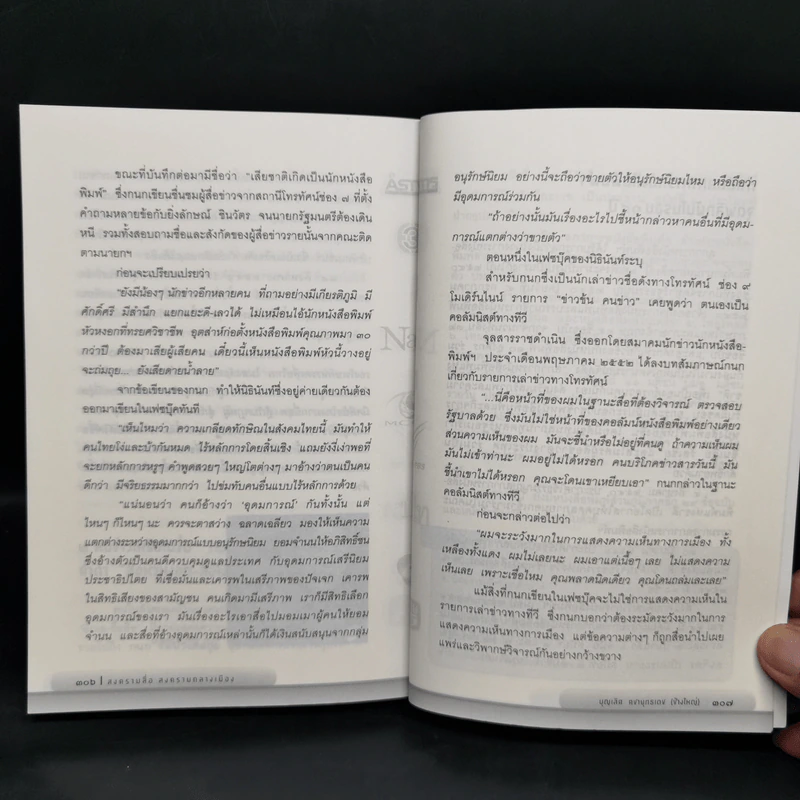 ขณะที่บันทึกต่อมามีชื่อว่า “เสียชาติเกิดเป็นนักหนังสือ
พิมพ์” ซึ่งกนกเขียนชื่นชมผู้สื่อข่าวจากสถานีโทรทัศน์ช่อง ๗ ที่ตั้ง
คำถามหลายข้อกับยิ่งลักษณ์ ชินวัตร จนนายกรัฐมนตรีต้องเดิน
หนี รวมทั้งสอบถามชื่อและสังกัดของผู้สื่อข่าวรายนั้นจากคณะติด
ตามนายกฯ
ก่อนจะเปรียบเปรยว่า
“ยังมีน้องๆ นักข่าวอีกหลายคน ที่ถามอย่างมีเกียรติภูมิ มี
ศักดิ์ศรี มีสำนึก แยกแยะดี-เลวได้ ไม่เหมือนไอ้นักหนังสือพิมพ์
หัวหงอกที่ทรยศวิชาชีพ อุตส่าห์ก่อตั้งหนังสือพิมพ์คุณภาพมา ๓๐
กว่าปี ต้องมาเสียผู้เสียคน เดี๋ยวนี้เห็นหนังสือพิมพ์หัวนี้วางอยู่
จะถ่มถุย... ยังเสียดายน้ำลาย”
จากข้อเขียนของกนก ทำให้นิธินันท์ซึ่งอยู่ค่ายเดียวกันต้อง
ออกมาเขียนในเฟซบุ๊คทันที
“เห็นไหมว่า ความเกลียดทักษิณในสังคมไทยนี้ มันทำให้
คนไทยโง่และบ้ากันหมด ไร้หลักการโดยสิ้นเชิง แถมยังงี่เง่าพอที่
จะยกหลักการหรูๆ คำพูดสวยๆ ใหญ่โตต่างๆ มาอ้างว่าตนเป็นคน
ดีกว่า มีจริยธรรมมากกว่า ไปข่มทับคนอื่นแบบไร้หลักการด้วย
“แน่นอนว่า คนก็อ้างว่า ‘อุดมการณ์’ กันทั้งนั้น แต่
ไหนๆ ก็ไหนๆ นะ ควรจะตาสว่าง ฉลาดเฉลียว มองให้เห็นความ
แตกต่างระหว่างอุดมการณ์แบบอนุรักษนิยม ยอมจำนนให้อภิสิทธิ์ชน
ซึ่งอ้างตัวเป็นคนดีควบคุมดูแลประเทศ กับอุดมการณ์เสรีนิยม
ประชาธิปไตย ที่เชื่อมั่นและเคารพในเสรีภาพของปัจเจก เคารพ
ในสิทธิเสียงของสามัญชน คนเกิดมามีเสรีภาพ เราก็มีสิทธิเลือก
อุดมการณ์ของเรา มันเรื่องอะไรเอาสื่อไปมอมเมาผู้คนให้ยอม
จำนน และสื่อที่อ้างอุดมการณ์เหล่านั้นก็ได้เงินสนับสนุนจากกลุ่ม
๓๐๖ | สงครามสื่อ สงครามกลางเมือง
อนุรักษ์นิยม อย่างนี้จะถือว่าขายตัวให้อนุรักษ์นิยมไหม หรือถือว่า
มีอุดมการณ์ร่วมกัน
“ถ้าอย่างนั้นมันเรื่องอะไรไปชี้หน้ากล่าวหาคนอื่นที่มีอุดม-
การณ์แตกต่างว่าขายตัว”
ตอนหนึ่งในเฟซบุ๊คของนิธินันท์ระบุ
สำหรับกนกซึ่งเป็นนักเล่าข่าวชื่อดังทางโทรทัศน์ ช่อง ๙
โมเดิร์นไนน์ รายการ “ข่าวข้น คนข่าว” เคยพูดว่า ตนเองเป็น
คอลัมนิสต์ทางทีวี
จุลสารราชดำเนิน ซึ่งออกโดยสมาคมนักข่าวนักหนังสือ-
พิมพ์ฯ ประจำเดือนพฤษภาคม ๒๕๕๒ ได้ลงบทสัมภาษณ์กนก
เกี่ยวกับรายการเล่าข่าวทางโทรทัศน์
“...นี่คือหน้าที่ของผมในฐานะสื่อที่ต้องวิจารณ์ ตรวจสอบ
รัฐบาลด้วย ซึ่งมันไม่ใช่หน้าที่ของคอลัมน์หนังสือพิมพ์อย่างเดียว
ส่วนความเห็นของผม มันจะชี้นำหรือไม่อยู่ที่คนดู ถ้าความเห็นผม
มันไม่เข้าท่านะ ผมอยู่ไม่ได้หรอก คนบริโภคข่าวสารวันนี้ มัน
ชี้นำเขาไม่ได้หรอก คุณจะโดนเขาเหยียบเอา” กนกกล่าวในฐานะ
คอลัมนิสต์ทางทีวี
ก่อนจะกล่าวต่อไปว่า
“ผมจะระวังมากในการแสดงความเห็นทางการเมือง ทั้ง
เหลืองทั้งแดง ผมไม่เลยนะ ผมเอาแต่เนื้อๆ เลย ไม่แสดงความ
เห็นเลย เพราะเชื่อไหม คุณพลาดนิดเดียว คุณโดนถล่มเละเลย”
แม้สิ่งที่กนกเขียนในเฟซบุ๊คจะไม่ใช่การแสดงความเห็นใน
รายการเล่าข่าวทางทีวี ซึ่งกนกบอกว่าต้องระมัดระวังมากในการ
แสดงความเห็นทางการเมือง แต่ข้อความต่างๆ ก็ถูกสื่อนำไปเผย
แพร่และวิพากษ์วิจารณ์กันอย่างกว้างขวาง
บุญเลิศ คชายุทธเดช (ช้างใหญ่) ๓๐๗